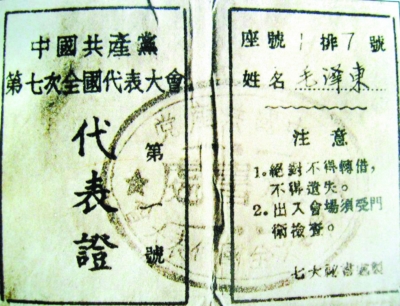 中國共產黨
第七次全國代表大會
代表證
第一號
座號 1 排 7 號
姓名 毛澤東
注意
1.絕對不得轉借，
不得遺失。
2.出入會場須受門
衛檢查。
七大秘書處製